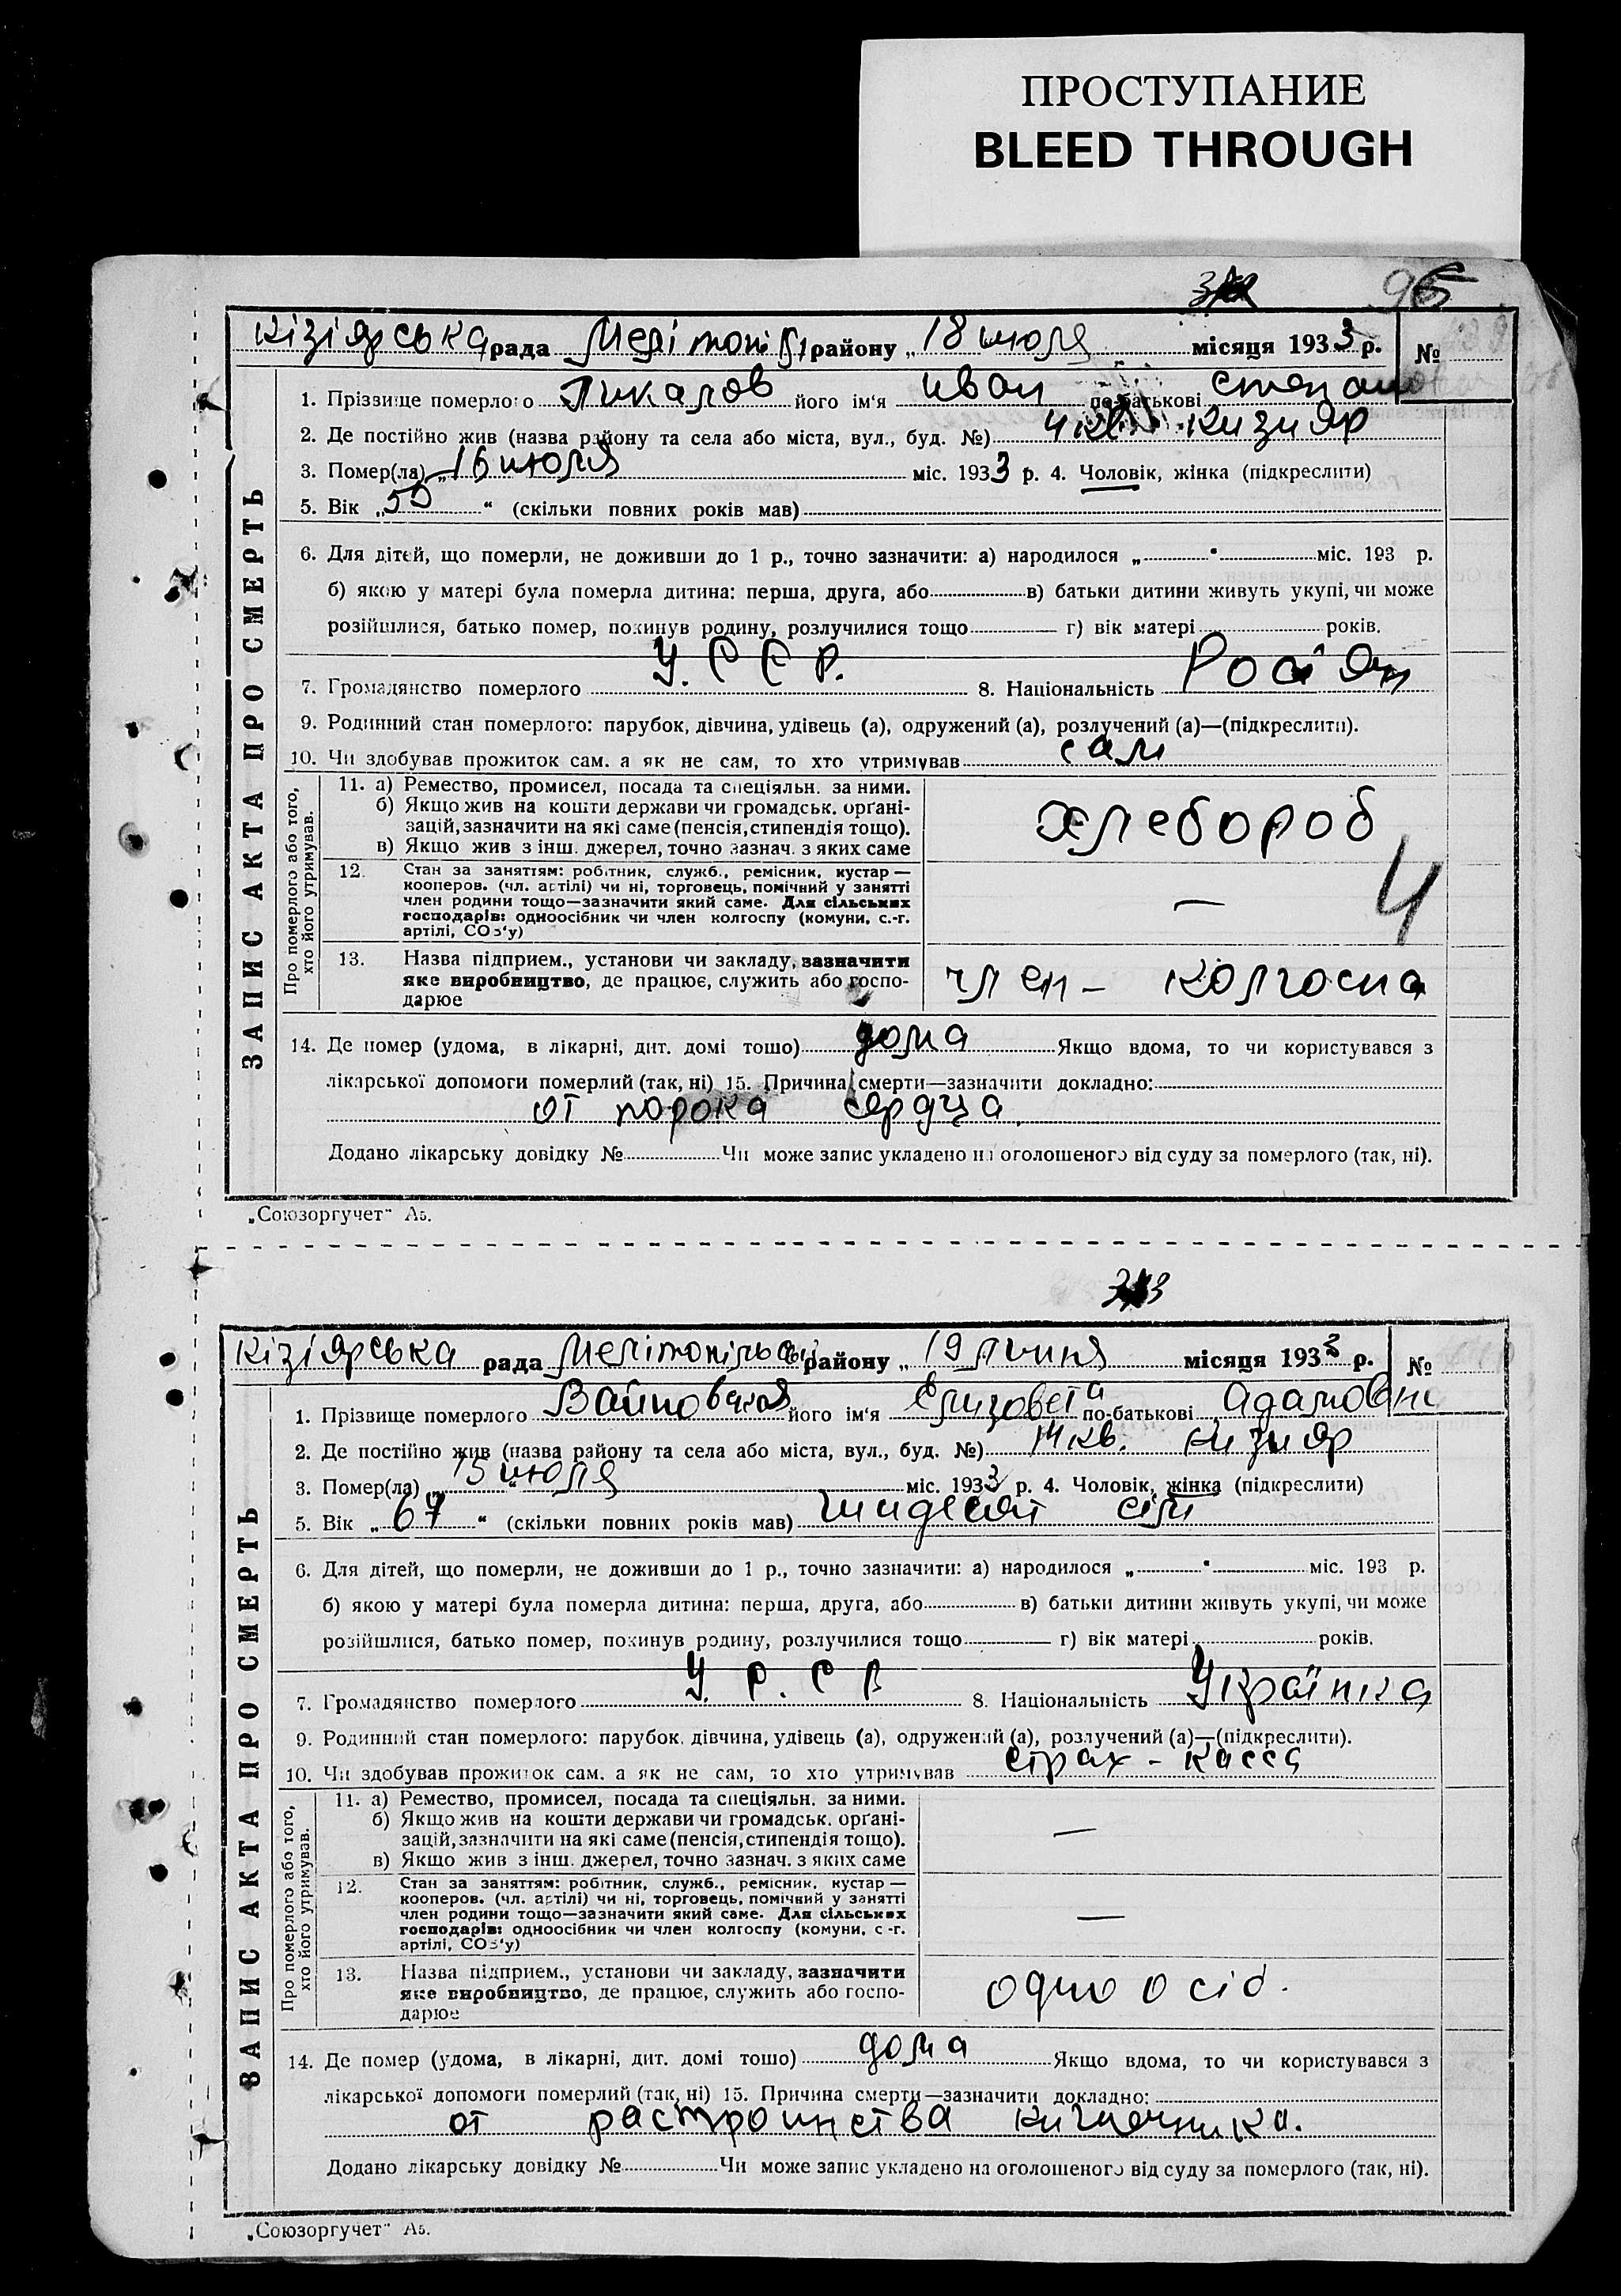 ПРОСТУПАНИЕ
BLEED THROUGH
96
Кізіярська рада Меліто районy „ 18 июля місяця 1933 р. №
1. Прізвище померлого Пикалов його ім‘я иван по-батькові степано
2. Де постійно жив (назва району та села або міста, вул., буд. №) 4 кв. Кизияр
3. Помер(ла) „ 16 июля міс. 1933 р. 4. Чоловік, жінка (підкреслити)
5. Вік „ 50 “ (скільки повних років мав)
6. Для дітей, що померли, не доживши до 1 р., точно зазначити: а) народилося „ “ міс. 193 р.
б) якою у матері була померла дитина: перша, друга, або в) батьки дитини живуть укупі, чи може
розійшлися, батько помер, покинув родину, розлучилися тощо г) вік матері років.
7. Громадянство померлого У. С С Р. 8. Національність Росіян
9. Родинний стан померлого: парубок, дівчина, удівець (а), одружений (а), розлучений (а)—(підкреслити).
10. Чи здобував прожиток сам, а як не сам, то хто утримував сам
ЗАПИС АКТА ПРО СМЕРТЬ
Про померлого або того, хто його утримував.
11. а) Ремество, промисел, посада та спеціяльн. за ними.
б) Якщо жив на кошти держави чи громадськ. орґані-
зацій, зазначити на які саме (пенсія, стипендія тощо).
в) Якщо жив з інш. джерел, точно зазнач. з яких саме
хлебороб
12. Стан за заняттям: робітник, служб., ремісник, кустар —
кооперов. (чл. артілі) чи ні, торговець, помічний у занятті
член родини тощо—зазначити який саме. Для сільських
господарів: одноосібник чи член колгоспу (комуни, с.-г.
артілі, СОЗ‘у)
— 4
13. Назва підприєм., установи чи закладу, зазначити
яке виробництво, де працює, служить або госпо-
дарює
член - колгоспа
14. Де помер (удома, в лікарні, дит. домі тощо) дома Якщо вдома, то чи користувався з
лікарської допомоги померлий (так, ні) 15. Причина смерти—зазначити докладно:
от порока сердца
Додано лікарську довідку № Чи може запис укладено на оголошеного від суду за померлого (так, ні).
„Союзоргучет“ А5.
Кізіярська рада Мелітопільськ району „ 19 липня місяця 1933 р. №
1. Прізвище померлого його ім‘я Єлизовета по-батькові Адамовни
2. Де постійно жив (назва району та села або міста, вул., буд. №) 14 кв. Кизияр
3. Помер(ла) „ 15 июля міс. 1933 р. 4. Чоловік, жінка (підкреслити)
5. Вік „ 67 “ (скільки повних років мав) шидесят сім
6. Для дітей, що померли, не доживши до 1 р., точно зазначити: а) народилося „ “ міс. 193 р.
б) якою у матері була померла дитина: перша, друга, або в) батьки дитини живуть укупі, чи може
розійшлися, батько помер, покинув родину, розлучилися тощо г) вік матері років.
7. Громадянство померлого У. Р. С Р 8. Національність Українка
9. Родинний стан померлого: парубок, дівчина, удівець (а), одружений (а), розлучений (а)—(підкреслити).
10. Чи здобував прожиток сам, а як не сам, то хто утримував страх - касса
ЗАПИС АКТА ПРО СМЕРТЬ
Про померлого або того, хто його утримував.
11. а) Ремество, промисел, посада та спеціяльн. за ними.
б) Якщо жив на кошти держави чи громадськ. орґані-
зацій, зазначити на які саме (пенсія, стипендія тощо).
в) Якщо жив з інш. джерел, точно зазнач. з яких саме
—
12. Стан за заняттям: робітник, служб., ремісник, кустар —
кооперов. (чл. артілі) чи ні, торговець, помічний у занятті
член родини тощо—зазначити який саме. Для сільських
господарів: одноосібник чи член колгоспу (комуни, с.-г.
артілі, СОЗ‘у)
—
13. Назва підприєм., установи чи закладу, зазначити
яке виробництво, де працює, служить або госпо-
дарює
одноосіб.
14. Де помер (удома, в лікарні, дит. домі тощо) дома Якщо вдома, то чи користувався з
лікарської допомоги померлий (так, ні) 15. Причина смерти—зазначити докладно:
от растроинства кишечника.
Додано лікарську довідку № Чи може запис укладено на оголошеного від суду за померлого (так, ні).
„Союзоргучет“ А5.